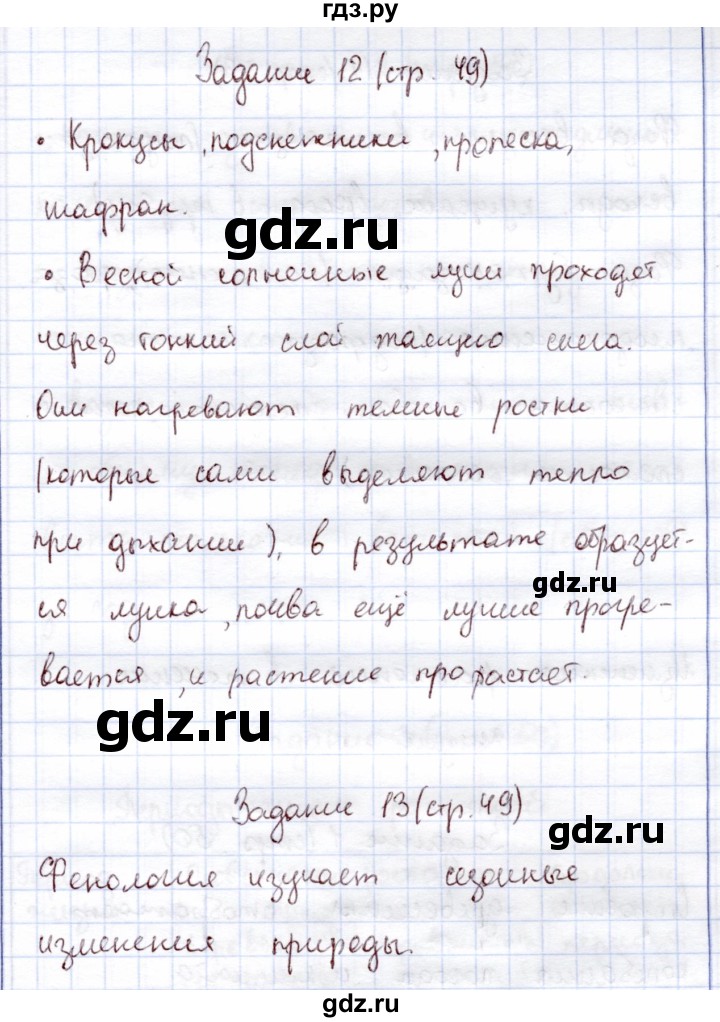 гдз.ру
Задание 12 (стр. 49)
• Крокусы, подснежники, пролеска,
шафран.
gdz.ru
• Весной солнечные лучи проходят
через тонкий слой таящего снега.
Они нагревают темные ростки
(которые сами выделяют тепло
при дыхании), в результате образует-
gdz.ru
ся лунка, почва ещё лучше прогре-
вается, и растение прорастает.
gdz.ru
Задание 13 (стр. 49)
gdz.ru
Фенология изучает сезонные
изменения природы.
gdz.ru